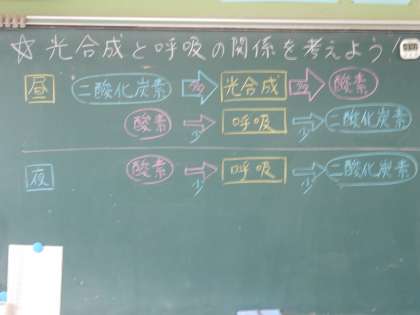 ☆光合成と呼吸の関係を考えよう!
昼 二酸化炭素 多 光合成 多 酸素
酸素 少 呼吸 少 二酸化炭素
夜 酸素 少 呼吸 少 二酸化炭素